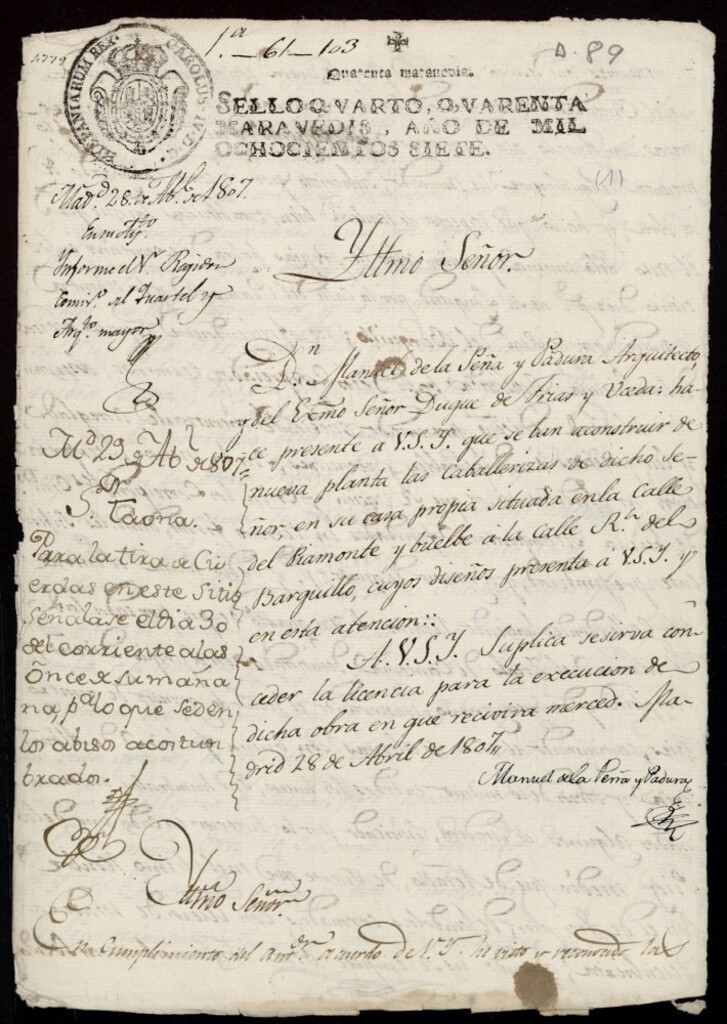 1779
HISPANIARUM REX CAROLUS IV D G
1.ª - 61 - 103
A. 89
Quarenta maravedis.
SELLO QVARTO, QVARENTA
MARAVEDIS, AÑO DE MIL
OCHOCIENTOS SIETE.
(1)
Mad.d 28 de Ab.l de 1807.
En
Informe el S.r Regidor
Comis.o al Quartel y
Arq.to mayor
Yltmo Señor.
D.n Manuel de la Peña y Padura Arquitecto,
y del Exmo Señor Duque de Frias y Uzeda: ha-
ce presente á V.S.Y. que se han aconstruir de
nueva planta las Caballerizas de dicho Se-
ñor, en su casa propia situada enla Calle
del Piamonte y buelbe á la Calle R.l del
Barquillo, cuyos diseños presenta á V.S.Y. y
en esta atencion::
A. V.S.Y. Suplica sesirva con-
ceder la licencia para la execucion de
dicha obra en que recivira merced. Ma-
drid 28 de Abril de 1807,,
Manuel de la Peña y Padura
M.d 29 de Ab.l de 807
S.or
Taona.
Para la tira de Cu
erdas en este Sitio
señalase el dia 30
del corriente a las
Once de su maña
na, p.a lo que se den
los abisos acostum
brados.
Yltmo Señor
En Cumplimiento del ant.or acuerdo de V.Y. he visto y reconocido los